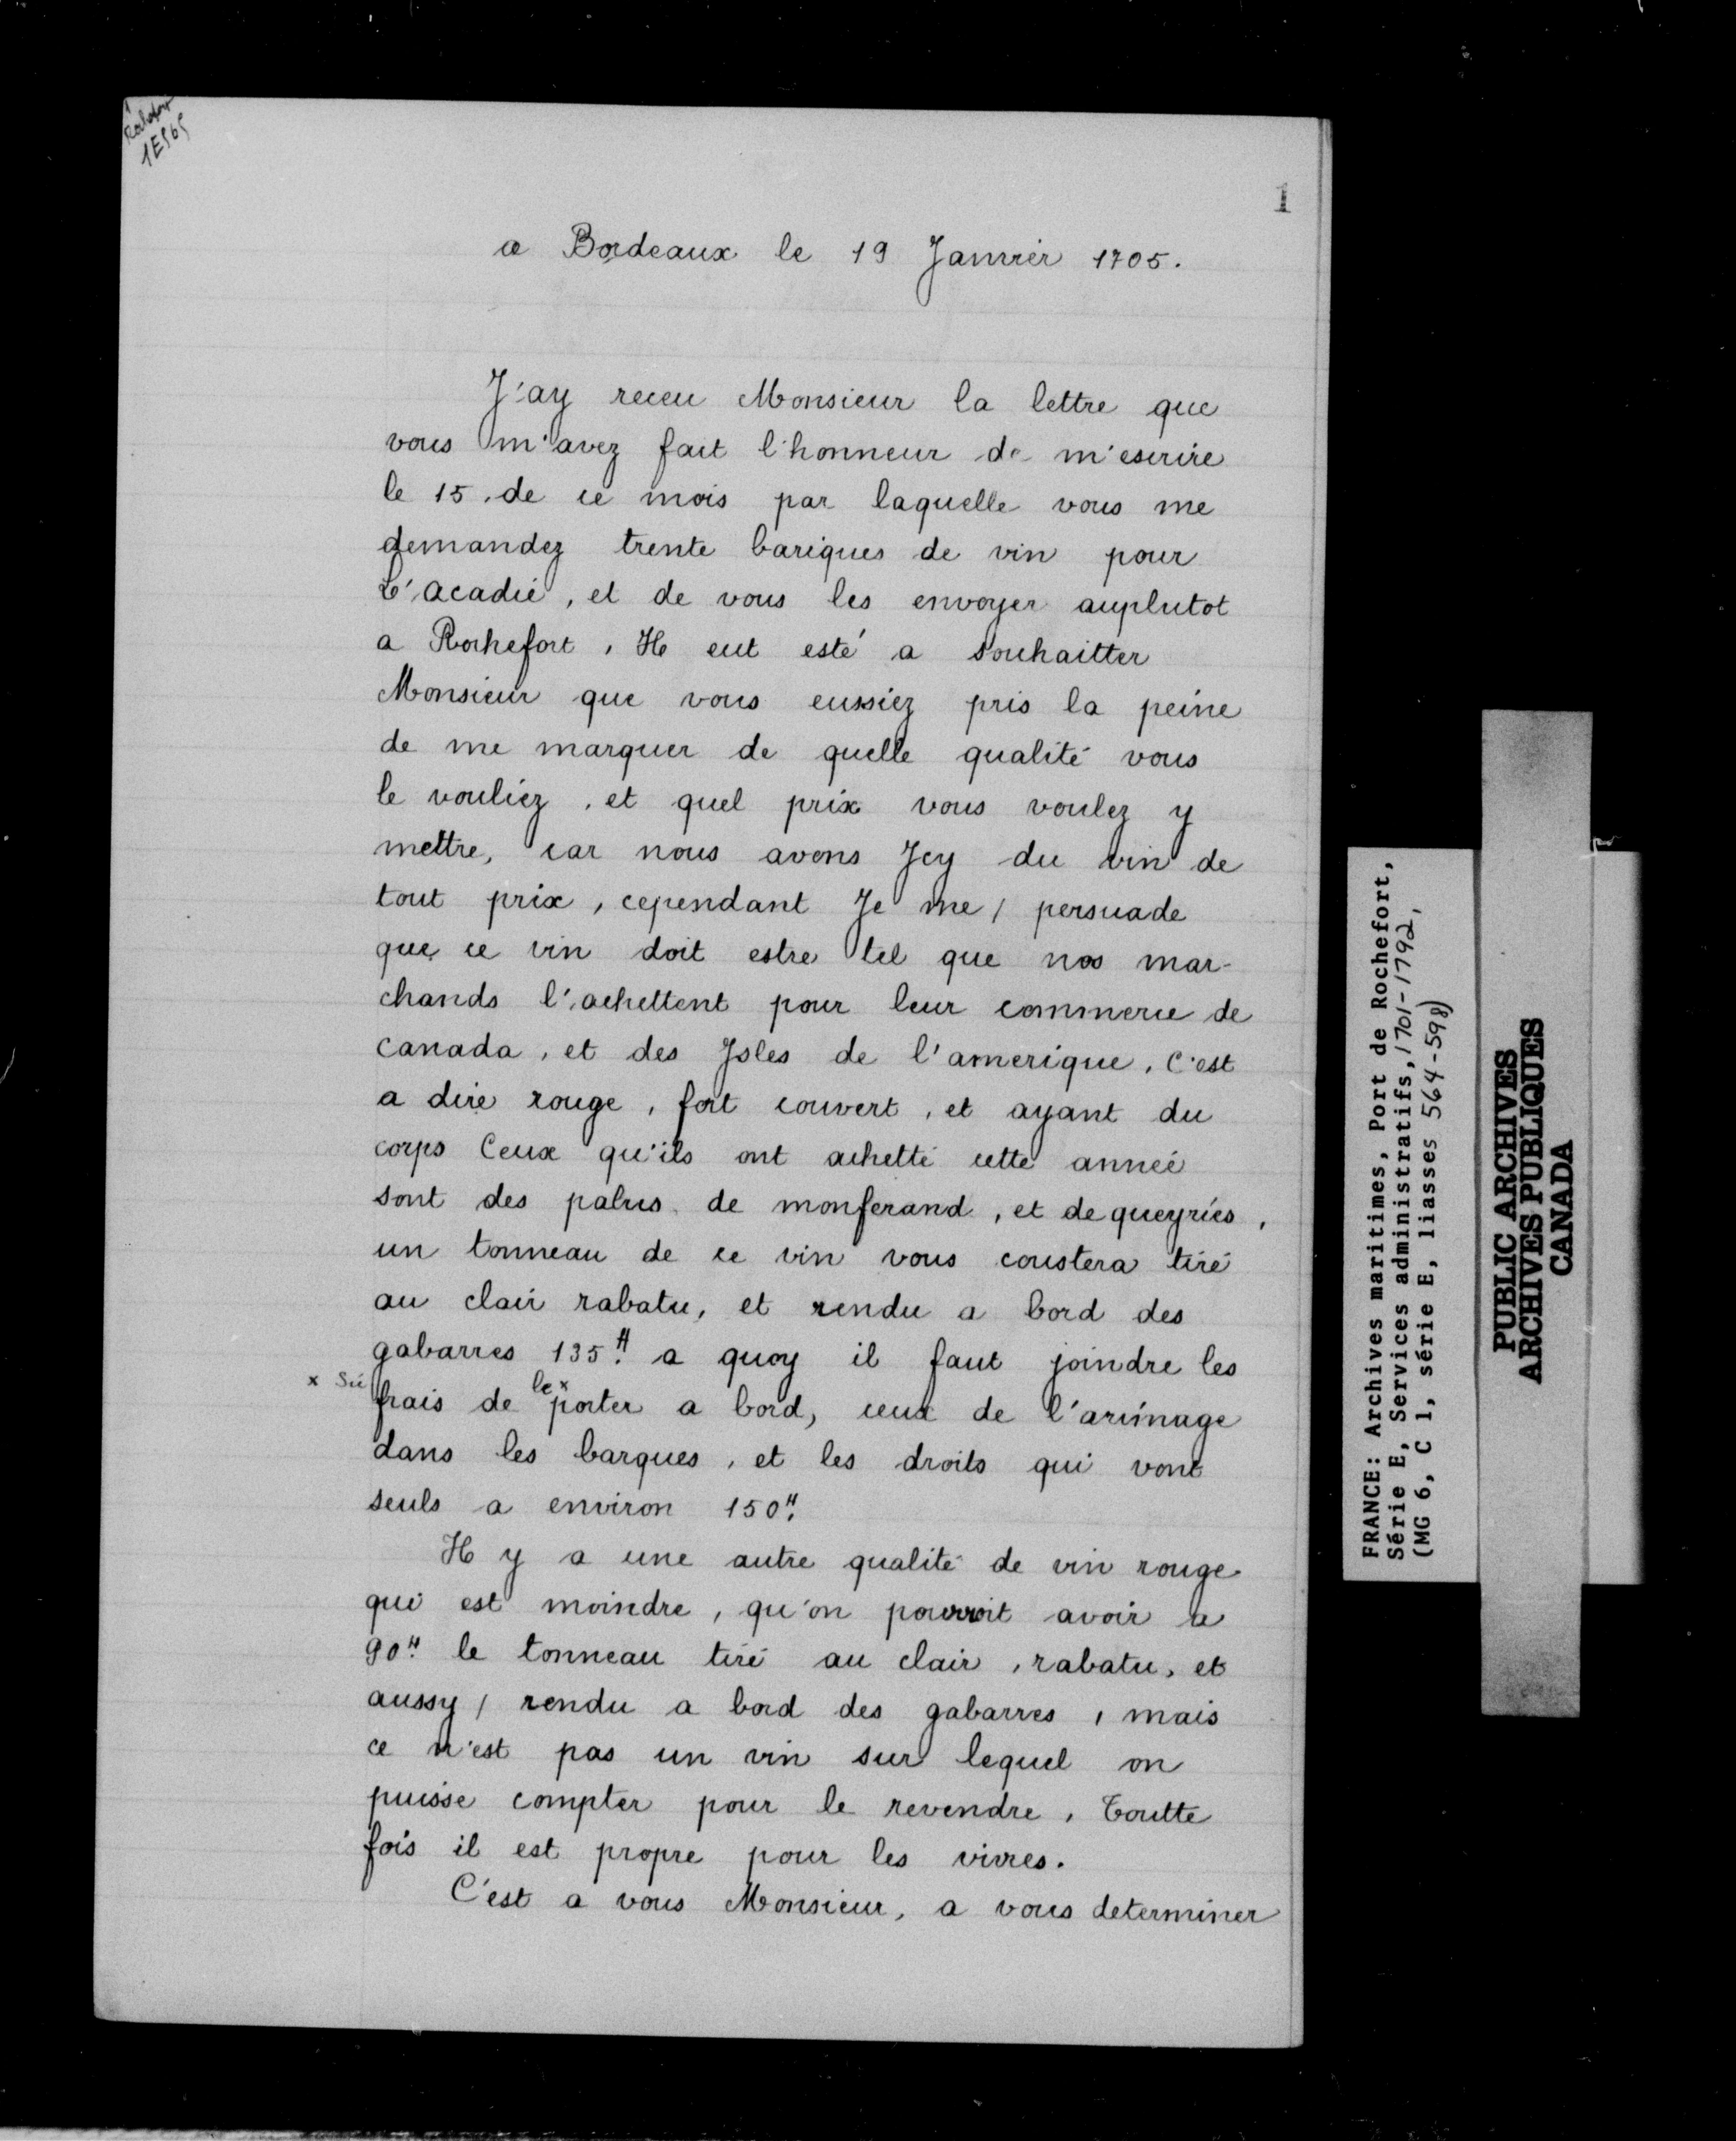 Rochefort
1E565
1
a Bordeaux le 19 Janvier 1705.
J'ay receu Monsieur la lettre que
vous m'avez fait l'honneur de m'escrire
le 15. de ce mois par laquelle vous me
demandez trente bariques de vin pour
L'acadie, et de vous les envoyer auplutot
a Rochefort, Il eut esté a souhaitter
Monsieur que vous eussiez pris la peine
de me marquer de quelle qualité vous
le vouliez, et quel prix vous voulez y
mettre, car nous avons Jcy du vin de
tout prix, cependant Je me / persuade
que ce vin doit estre tel que nos mar-
chands l'achettent pour leur commerce de
canada, et des Jsles de l'amerique, c'est
a dire rouge, fort couvert, et ayant du
corps Ceux qu'ils ont achetté cette année
sont des palus de monferand, et de queyries,
un tonneau de ce vin vous coustera tiré
au clair rabatu, et rendu a bord des
gabarres 135ᴴ. a quoy il faut joindre les
x Sic
frais de le x porter a bord, ceux de l'arimage
dans les barques, et les droits qui vont
seuls a environ 150ᴴ.
Il y a une autre qualité de vin rouge
qui est moindre, qu'on pourroit avoir a
90ᴴ. le tonneau tiré au clair, rabatu, et
aussy / rendu a bord des gabarres, mais
ce n'est pas un vin sur lequel on
puisse compter pour le revendre, Toutte
fois il est propre pour les vivres.
C'est a vous Monsieur, a vous determiner
FRANCE: Archives maritimes, Port de Rochefort,
Série E, Services administratifs, 1701-1792,
(MG 6, C 1, série E, liasses 564-598)
PUBLIC ARCHIVES
ARCHIVES PUBLIQUES
CANADA